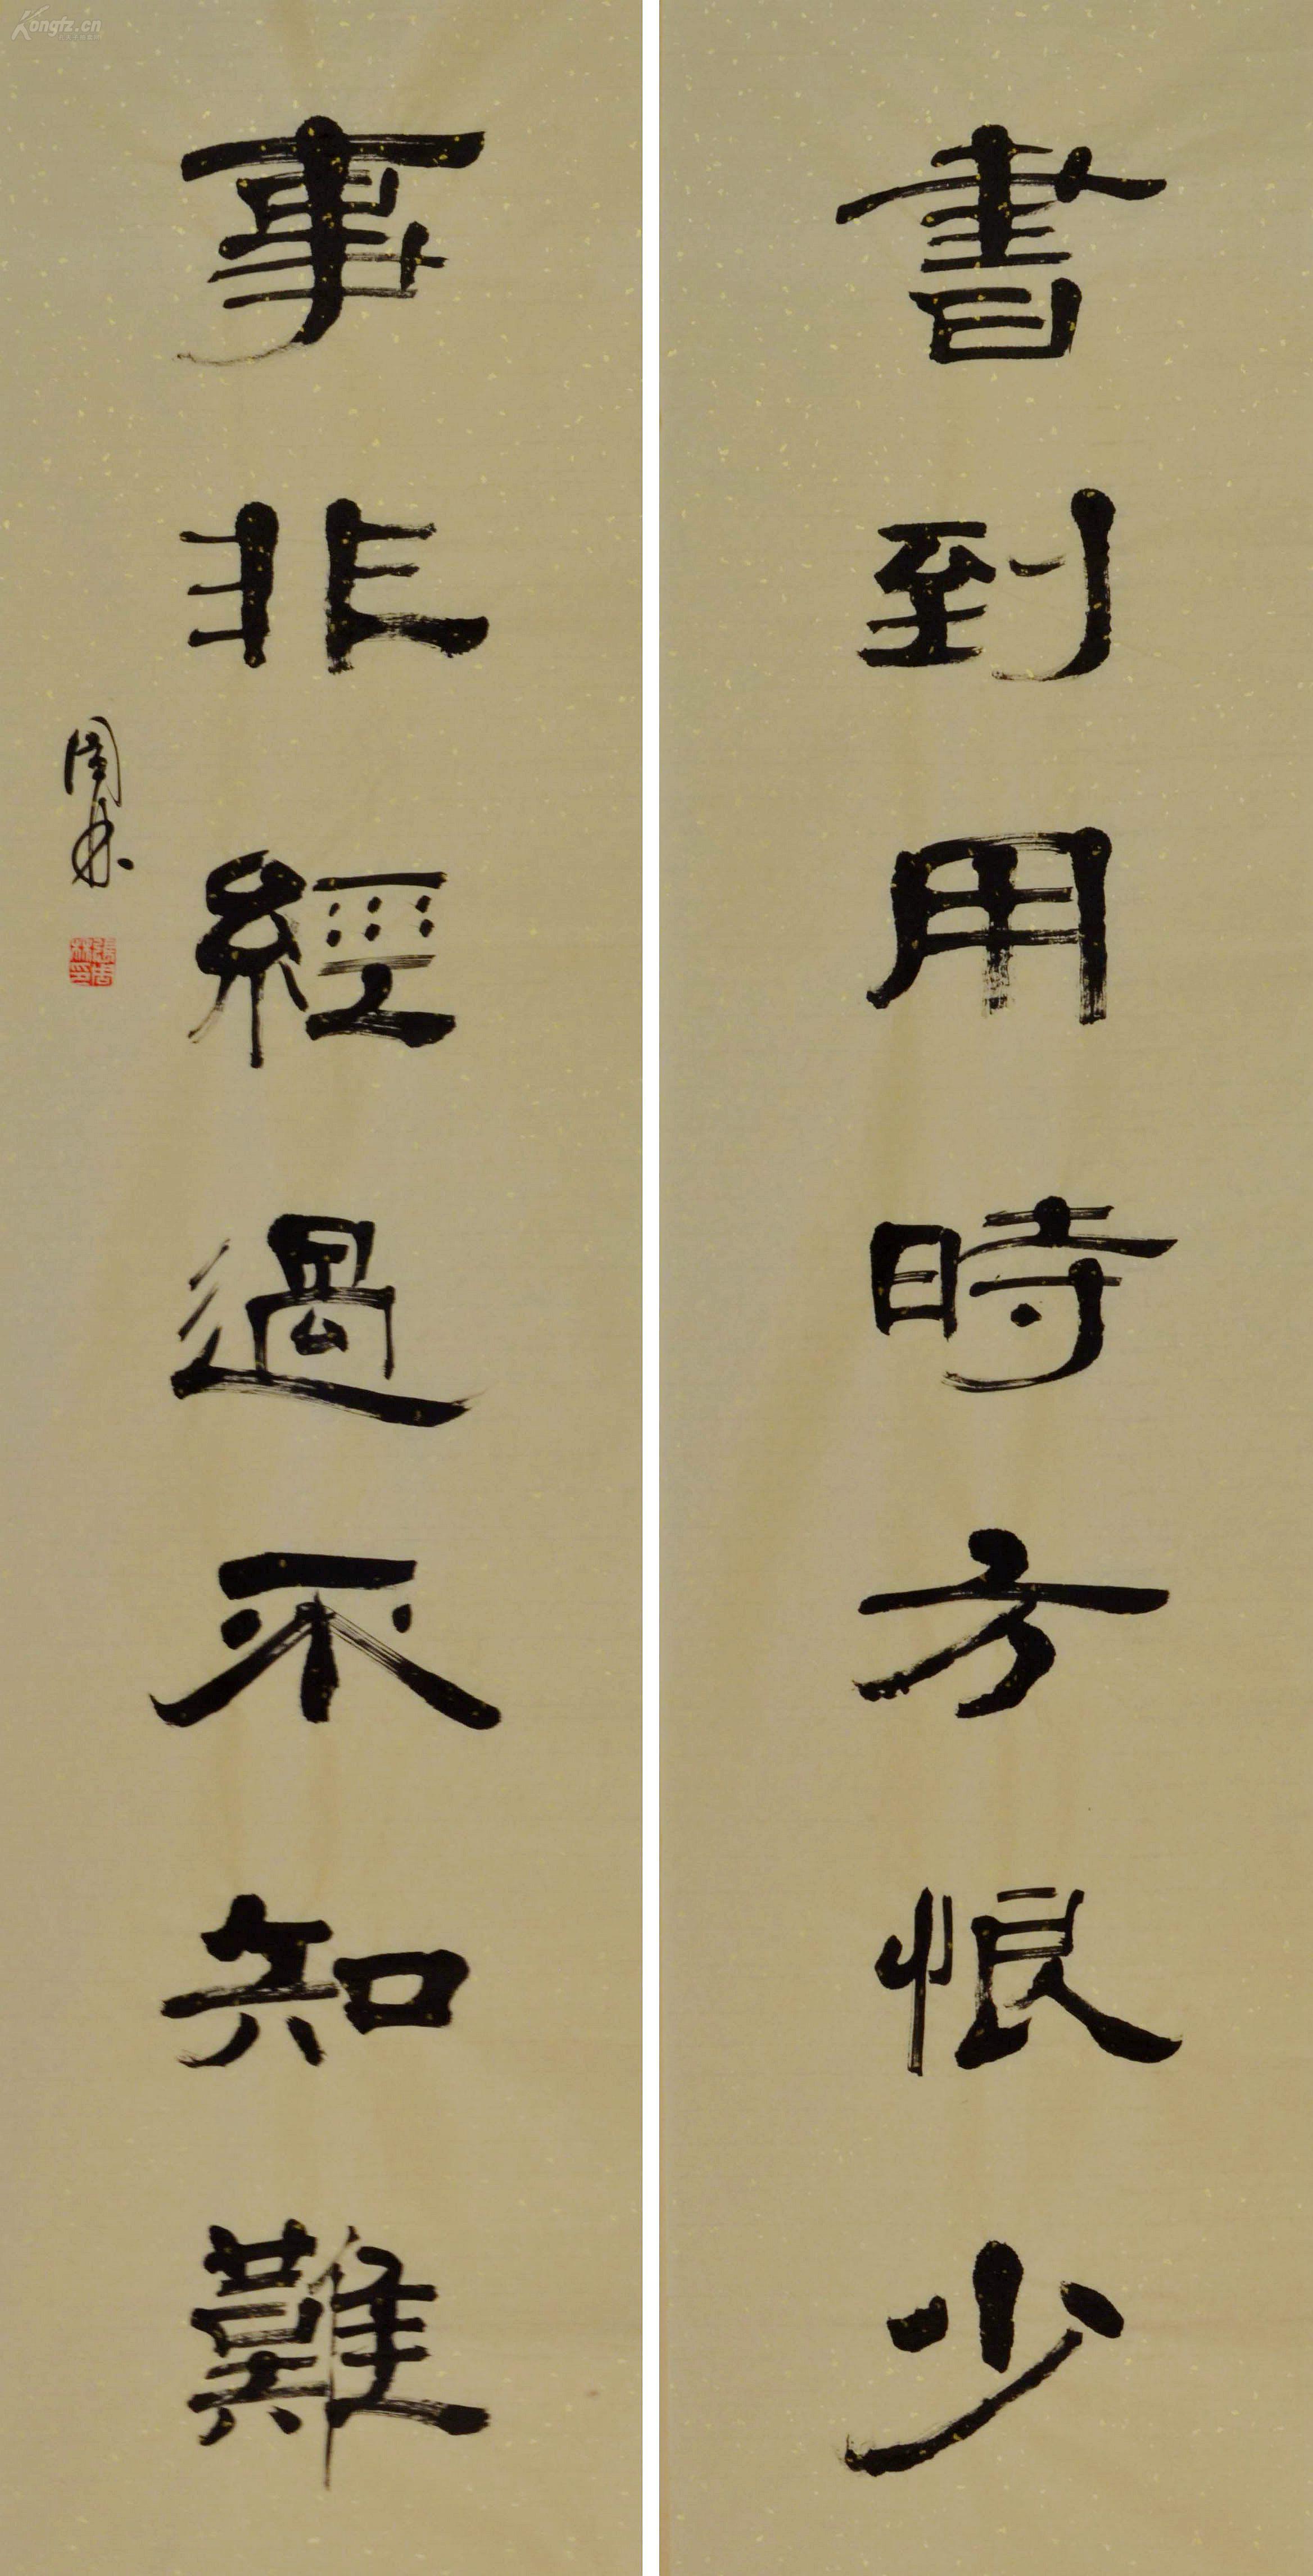 書到用時方恨少
事非經過不知難
周林
張周林印
Kongfz.cn